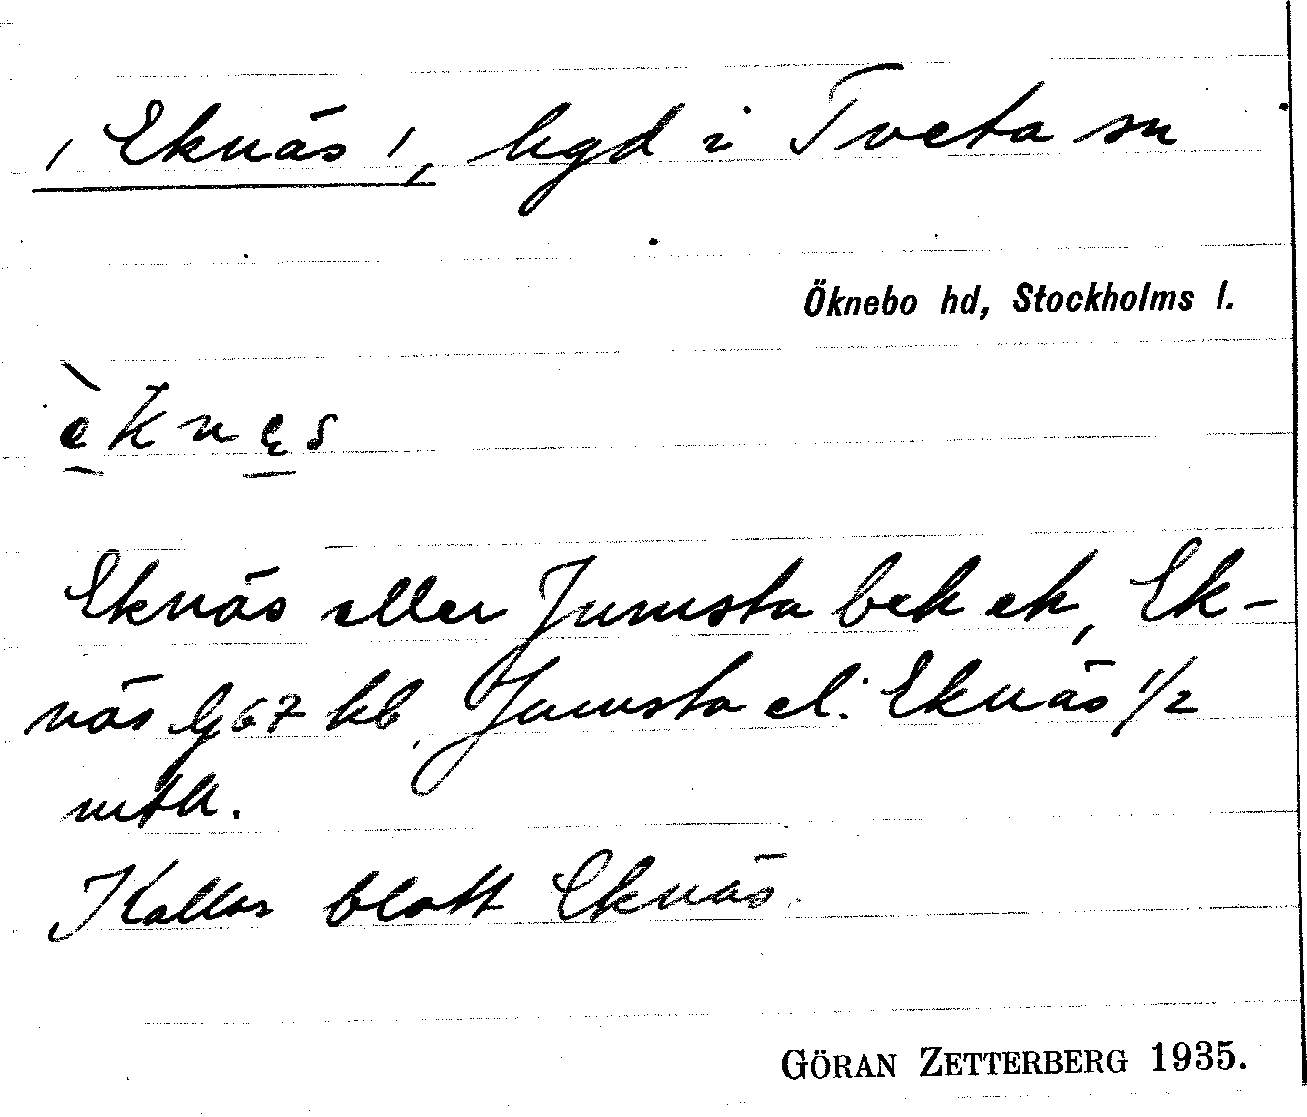 / Eknäs /, bgd i Tveta sn
Öknebo hd, Stockholms l.
èknęs
Eknäs eller Jumsta bek ek, Ek-
näs G67 kb, Jumsta el. Eknäs 1/2
mtl.
Kallas blott Eknäs.
GÖRAN ZETTERBERG 1935.